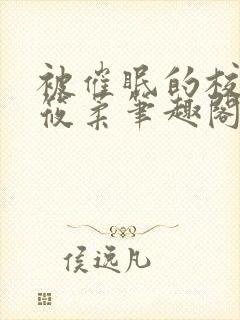 被催眠的校
筱柔笔趣阁
侯远凡